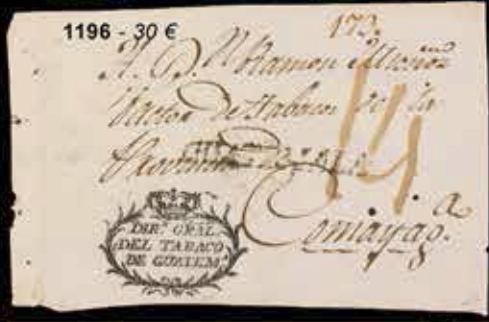 1196 - 30 €
173.
A. D. Ramon Muñoz
Factor de Tabacos de la
Provincia de
Comayag.ª
DIR.ⁿ GRAL.
DEL TABACO
DE GUATEM.ª